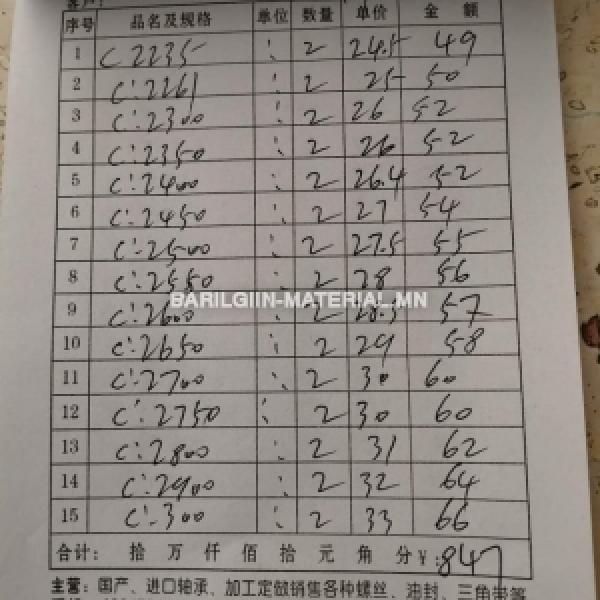 客户：
序号 品名及规格 单位 数量 单价 金 额
1 C 2235 : 2 24.5 49
2 C:2261 : 2 25 50
3 C:2300 : 2 26 52
4 C:2350 : 2 26 52
5 C:2400 : 2 26.4 52
6 C:2450 : 2 27 54
7 C:2500 : 2 27.5 55
8 C:2550 : 2 28 56
BARILGIIN-MATERIAL.MN
9 C:2600 2 28.5 57
10 C:2650 : 2 29 58
11 C:2700 : 2 30 60
12 C:2750 : 2 30 60
13 C:2800 : 2 31 62
14 C:2900 : 2 32 64
15 C:300 : 2 33 66
合计： 拾 万 仟 佰 拾 元 角 分 ¥:847
主营：国产、进口轴承、加工定做销售各种螺丝、油封、三角带等